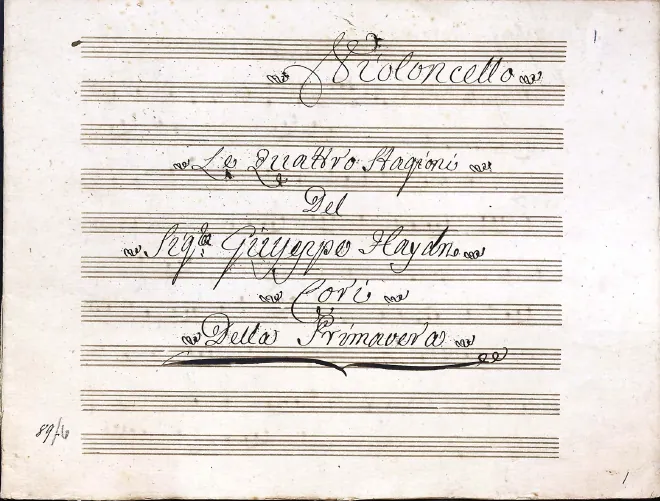 1.
Violoncello
Le Quattro Stagioni
Del
Sig.re Giuseppe Haydn
Cori
Della Primavera
89/6
1